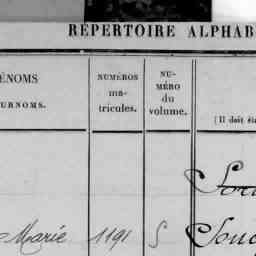 RÉPERTOIRE ALPHAB
ÉNOMS
URNOMS.
NUMÉROS
ma-
tricules.
NU-
MÉRO
du
volume.
(Il doit êt
Marie 1191 5